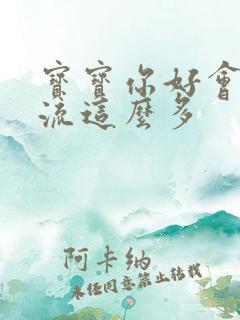 寶寶你好會
流這麼多
阿卡納
未經同意禁止轉載